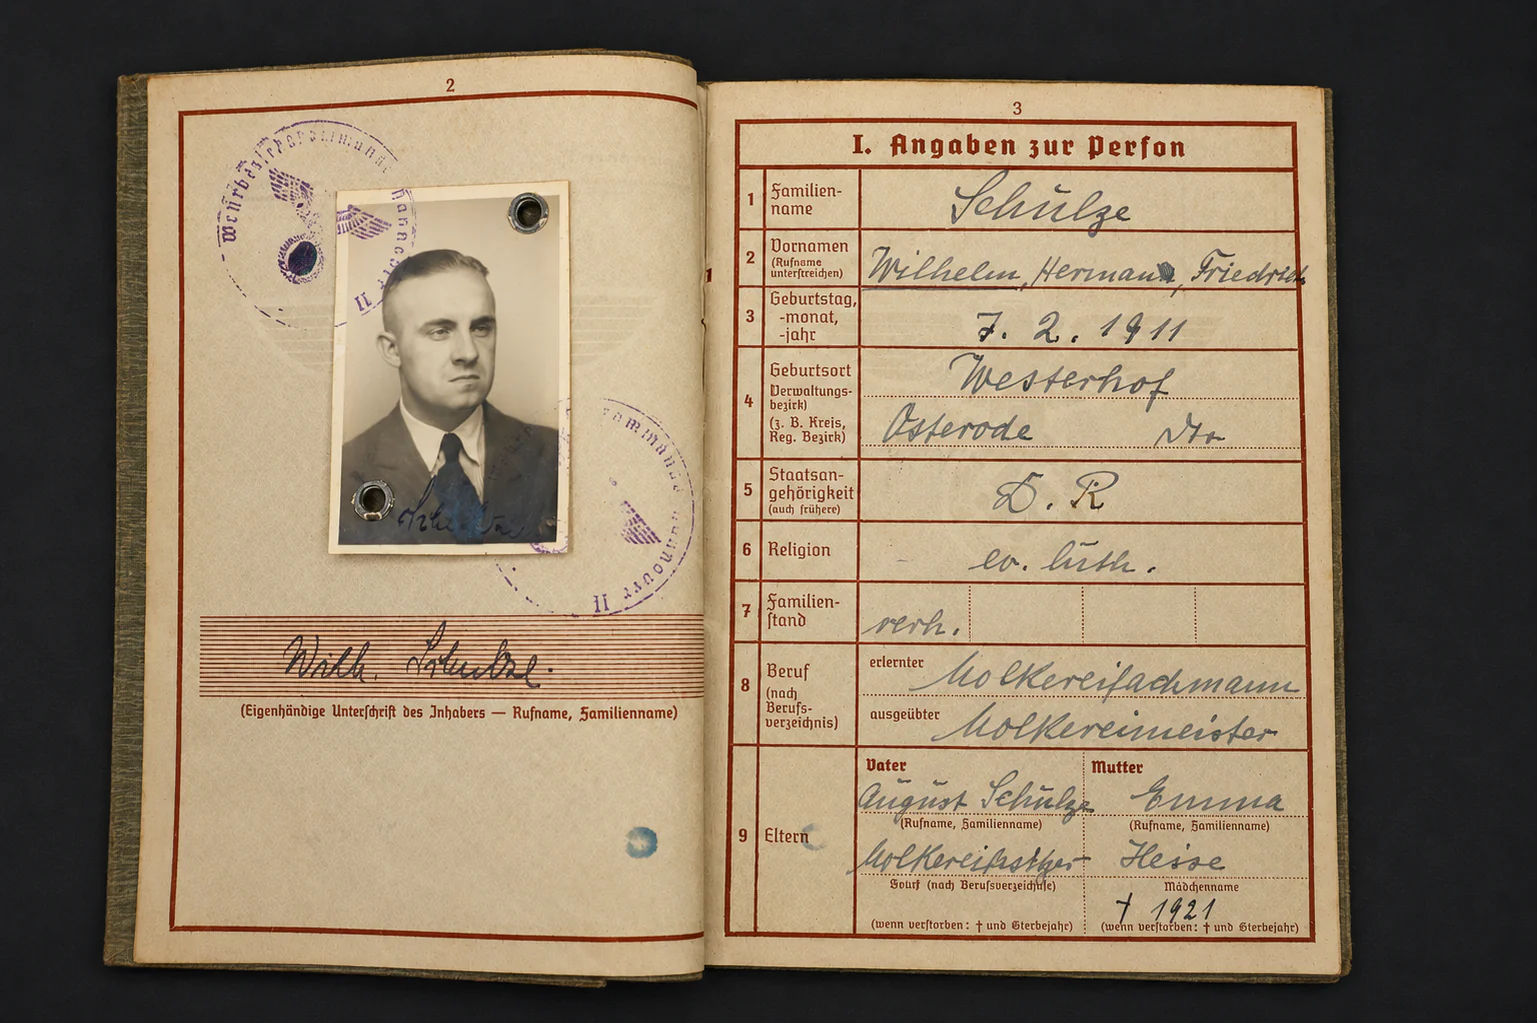 2
Hannover II
Hannover II
Wilh. Schulze.
(Eigenhändige Unterschrift des Inhabers — Rufname, Familienname)
3
I. Angaben zur Person
1 Familien-
name
Schulze
2 Vornamen
(Rufname
unterstreichen)
Wilhelm, Hermann, Friedrich
3 Geburtstag,
-monat,
-jahr
7. 2. 1911
4 Geburtsort
Verwaltungs-
bezirk)
(z. B. Kreis,
Reg. Bezirk)
Westerhof
Osterode
5 Staatsan-
gehörigkeit
(auch frühere)
D. R
6 Religion
ev. luth.
7 Familien-
stand
verh.
8 Beruf
(nach
Berufs-
verzeichnis)
erlernter Molkereifachmann
ausgeübter Molkereimeister
9 Eltern
Vater Mutter
August Schulze Emma
(Rufname, Familienname) (Rufname, Familienname)
Molkereibesitzer Heise
(nach Berufsverzeichnis) Mädchenname
† 1921
(wenn verstorben: † und Sterbejahr) (wenn verstorben: † und Sterbejahr)